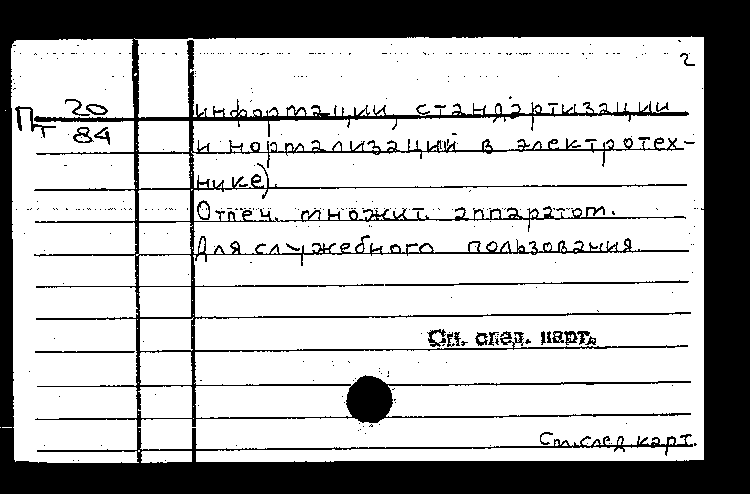 2
П 20
Т 84
информации, стандартизации
и нормализаций в электротех-
нике).
Отпеч. множит. аппаратом.
Для служебного пользования
См. след. карт.
См. след. карт.